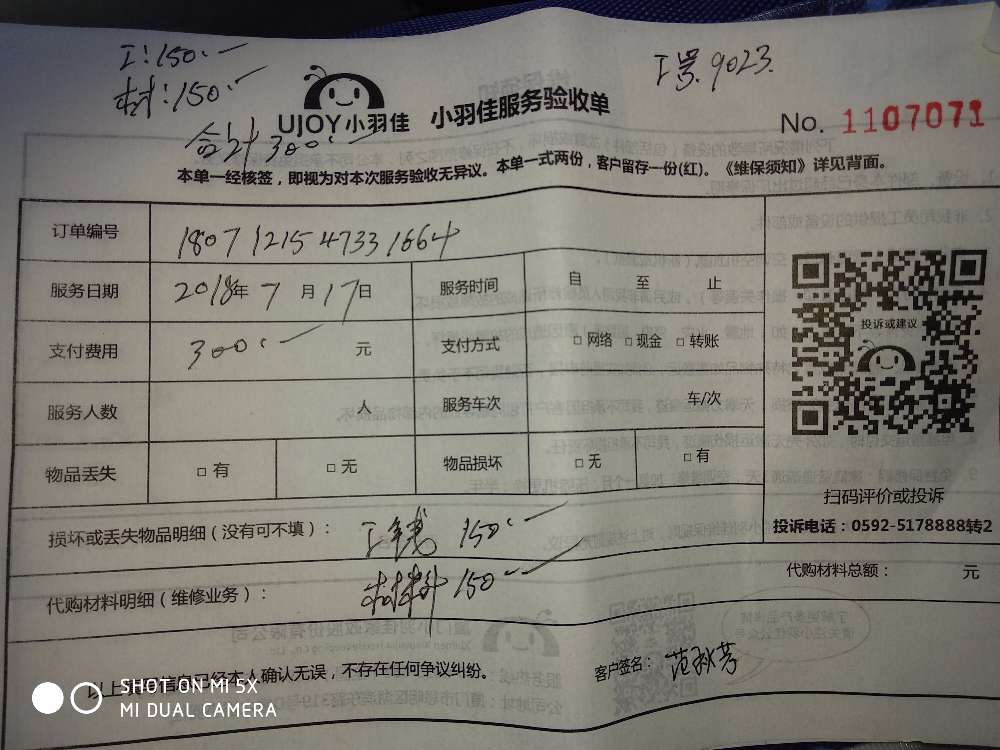 工:150.
材:150.
合计300.
工号.9023.
UJOY小羽佳 小羽佳服务验收单
No. 1107071
本单一经核签，即视为对本次服务验收无异议。本单一式两份，客户留存一份(红)。《维保须知》详见背面。
订单编号 1807121547331664
服务日期 2018年7月17日 服务时间 自 至 止
支付费用 300. 元 支付方式 □网络 □现金 □转账
服务人数 人 服务车次 车/次
物品丢失 □有 □无 物品损坏 □无 □有
投诉或建议
扫码评价或投诉
投诉电话：0592-5178888转2
损坏或丢失物品明细（没有可不填）： 工钱 150.
代购材料明细（维修业务）： 材料 150.
代购材料总额： 元
以上 信息已经本人确认无误，不存在任何争议纠纷。
客户签名： 范秋芳
SHOT ON MI 5X
MI DUAL CAMERA